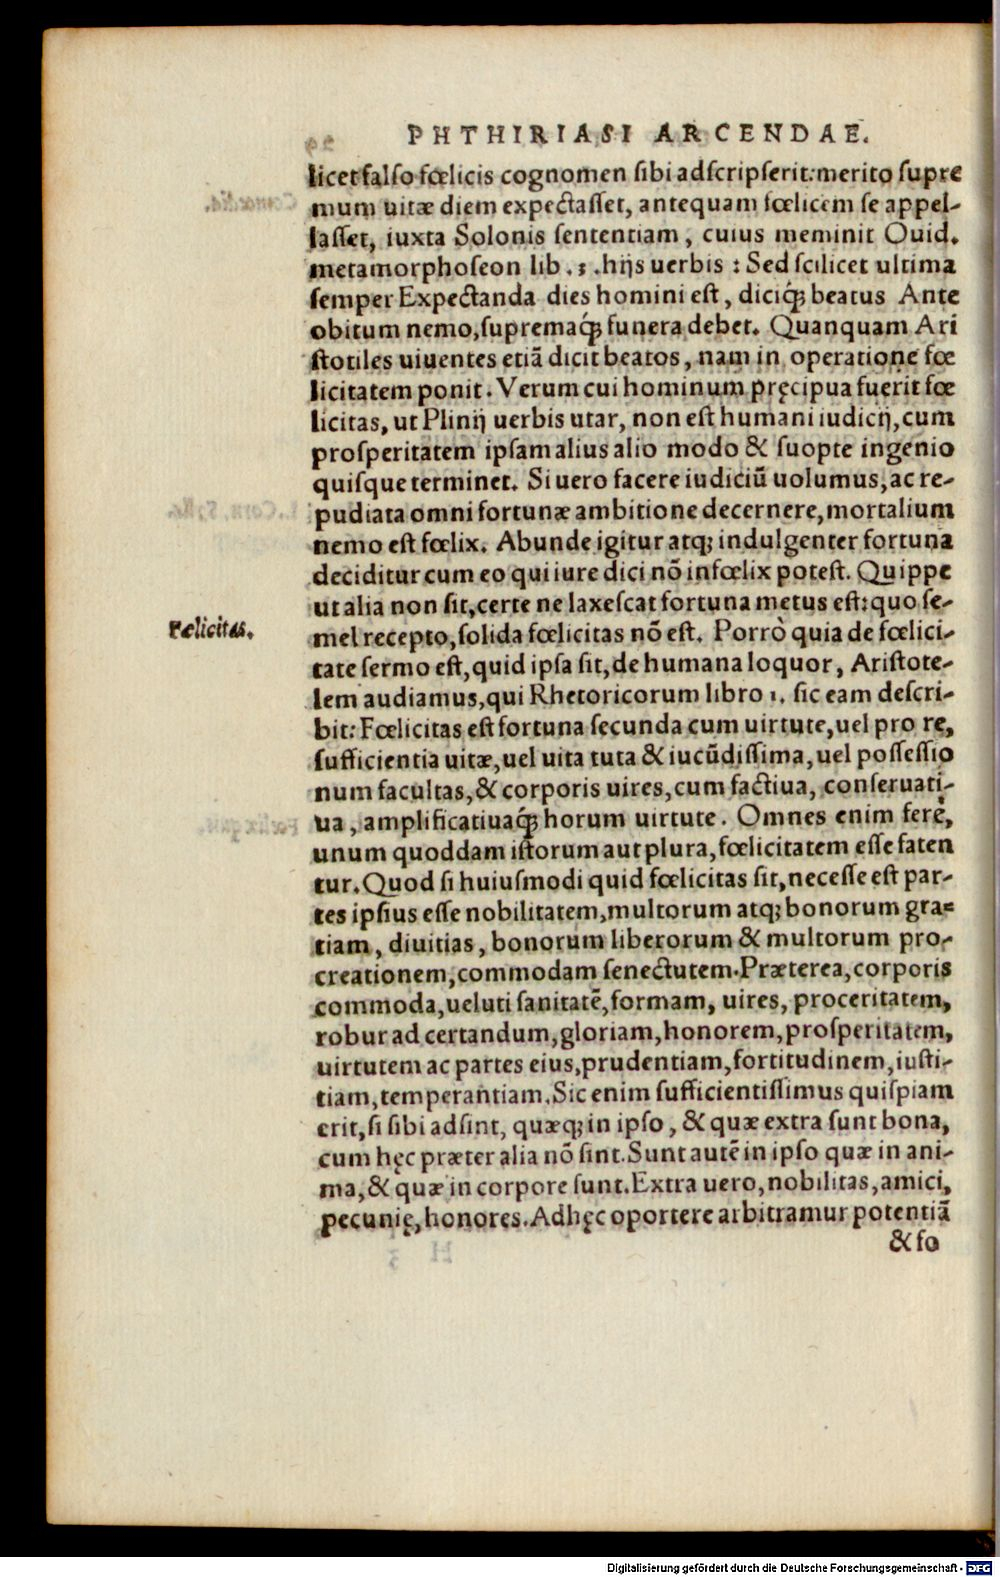 PHTHIRIASI ARCENDAE.
licet falso fœlicis cognomen sibi adscripserit: merito supre
mum uitæ diem expectasset, antequam fœlicem se appel-
lasset, iuxta Solonis sententiam, cuius meminit Ouid.
metamorphoseon lib. 3. hijs uerbis: Sed scilicet ultima
semper Expectanda dies homini est, diciq́; beatus Ante
obitum nemo, supremaq́; funera debet. Quanquam Ari
stotiles uiuentes etiã dicit beatos, nam in operatione fœ
licitatem ponit. Verum cui hominum pręcipua fuerit fœ
licitas, ut Plinij uerbis utar, non est humani iudicij, cum
prosperitatem ipsam alius alio modo & suopte ingenio
quisque terminet. Si uero facere iudiciũ uolumus, ac re-
pudiata omni fortunæ ambitione decernere, mortalium
nemo est fœlix. Abunde igitur atq; indulgenter fortuna
deciditur cum eo qui iure dici nõ infœlix potest. Quippe
ut alia non sit, certe ne laxescat fortuna metus est: quo se-
Fœlicitas.
mel recepto, solida fœlicitas nõ est. Porrò quia de fœlici-
tate sermo est, quid ipsa sit, de humana loquor, Aristote-
lem audiamus, qui Rhetoricorum libro 1. sic eam descri-
bit: Fœlicitas est fortuna secunda cum uirtute, uel pro re,
sufficientia uitæ, uel uita tuta & iucũdissima, uel possessio
num facultas, & corporis uires, cum factiua, conseruati-
ua, amplificatiuaq́; horum uirtute. Omnes enim ferè,
unum quoddam istorum aut plura, fœlicitatem esse faten
tur. Quod si huiusmodi quid fœlicitas sit, necesse est par-
tes ipsius esse nobilitatem, multorum atq; bonorum gra-
tiam, diuitias, bonorum liberorum & multorum pro-
creationem, commodam senectutem. Præterea, corporis
commoda, ueluti sanitatẽ, formam, uires, proceritatem,
robur ad certandum, gloriam, honorem, prosperitatem,
uirtutem ac partes eius, prudentiam, fortitudinem, iusti-
tiam, temperantiam. Sic enim sufficientissimus quispiam
erit, si sibi adsint, quæq; in ipso, & quæ extra sunt bona,
cum hęc præter alia nõ sint. Sunt autẽ in ipso quæ in ani-
ma, & quæ in corpore sunt. Extra uero, nobilitas, amici,
pecunię, honores. Adhęc oportere arbitramur potentiã
& fo
Digitalisierung gefördert durch die Deutsche Forschungsgemeinschaft - DFG